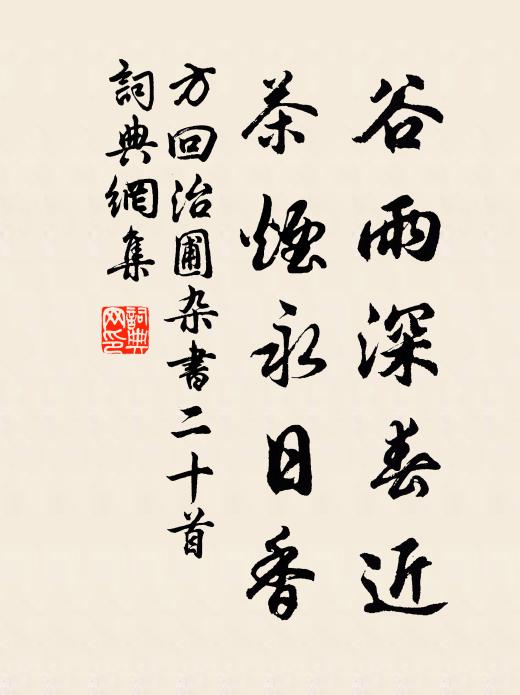 谷雨深春近
茶煙永日香
方回治圃杂書二十首
詞典網集
詞典网印